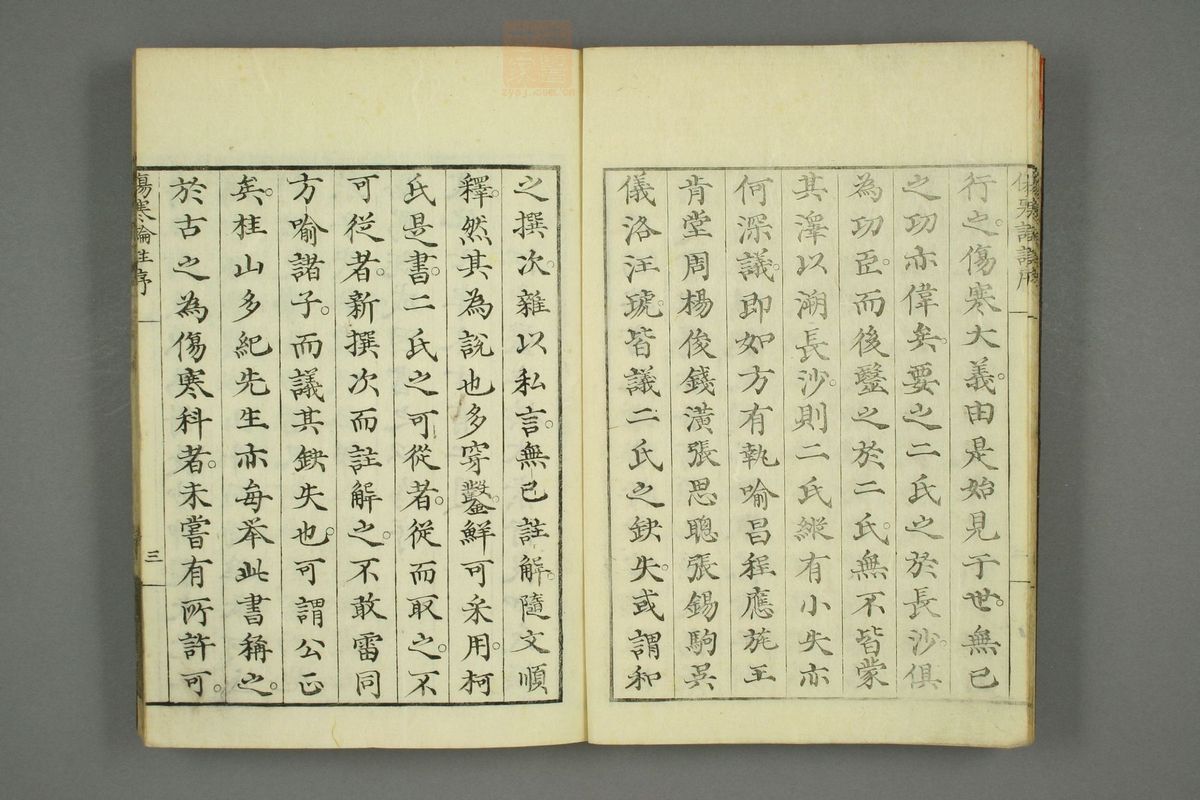 行之。傷寒大義。由是始見于世。無已
之功亦偉矣。要之二氏之於長沙。俱
為功臣。而後毉之於二氏。無不皆蒙
其澤以溯長沙。則二氏縱有小失亦
何深議。即如方有執喻昌程應旄王
肯堂周楊俊錢潢張思聰張錫駒吳
儀洛汪琥。皆議二氏之缺失。或謂和
之撰次。雜以私言。無已註解。隨文順
釋。然其為說也多穿鑿。鮮可采用。柯
氏是書。二氏之可從者。從而取之。不
可從者。新撰次而註解之。不敢雷同
方喻諸子。而議其缺失也。可謂公正
矣。桂山多紀先生亦每举此書稱之。
於古之為傷寒科者。未嘗有所許可。
傷寒論註序
三